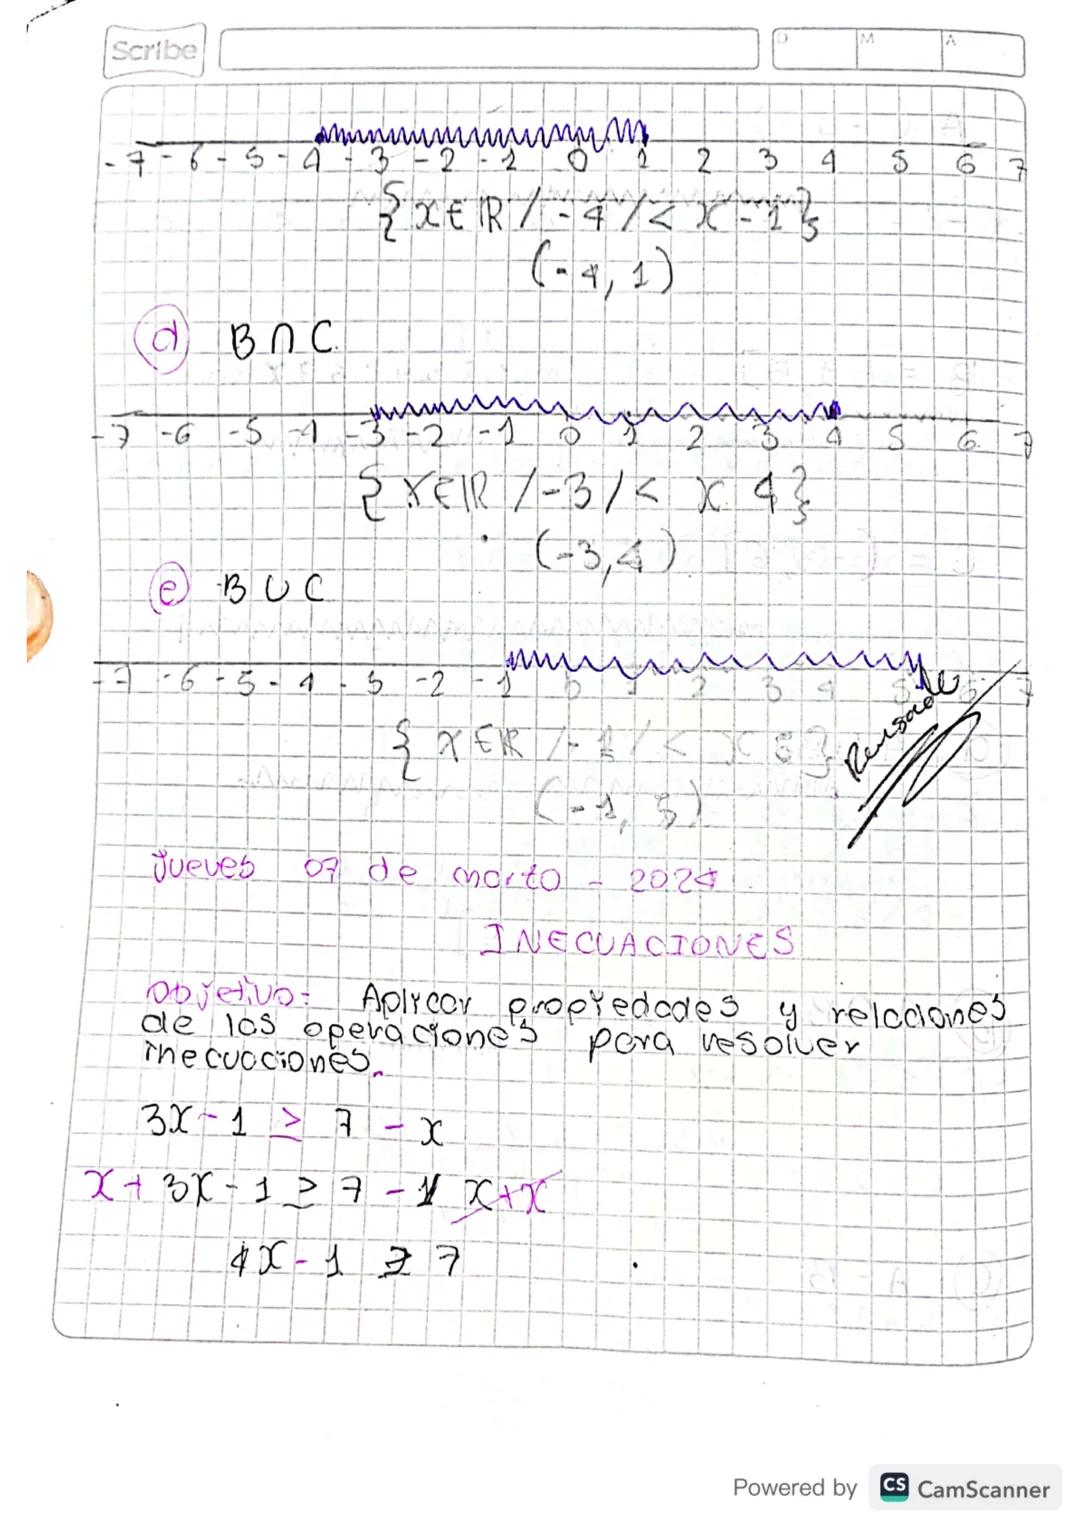 Scribe
D M A
-7 -6 -5 -4 -3 -2 -1 0 1 2 3 4 5 6 7
{x∈ℝ / -4 /< x -1}
(-4, 1)
d) B ∩ C.
-7 -6 -5 -4 -3 -2 -1 0 1 2 3 4 5 6 7
{x∈ℝ / -3 /< x 4}
(-3, 4)
e) B ∪ C
-7 -6 -5 -4 -3 -2 -1 0 1 2 3 4 5 6 7
{x∈ℝ / -1 /< x 5}
(-1, 5)
jueves 07 de marzo - 2024
INECUACIONES
Objetivo: Aplicar propiedades y relaciones
de las operaciones para resolver
inecuaciones.
3x - 1 ≥ 7 - x
x + 3x - 1 ≥ 7 - x + x
4x - 1 ≥ 7
Powered by CS CamScanner